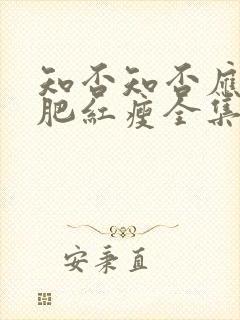 知否知否應
肥紅瘦全集
安秉直